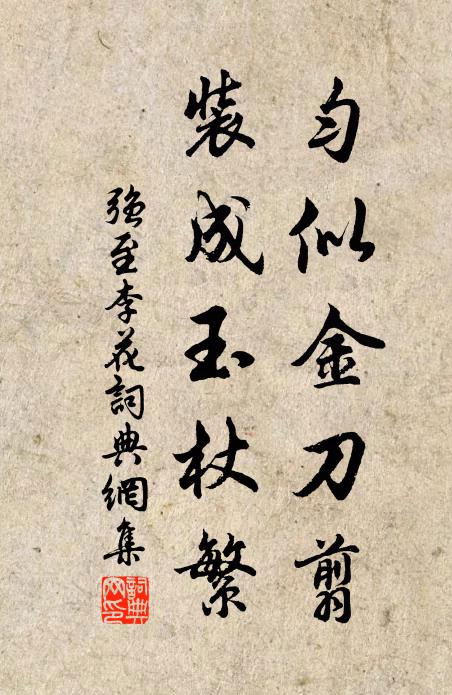 勻似金刀翦
裝成玉杖繁
強至李花詞典網集
詞典網印